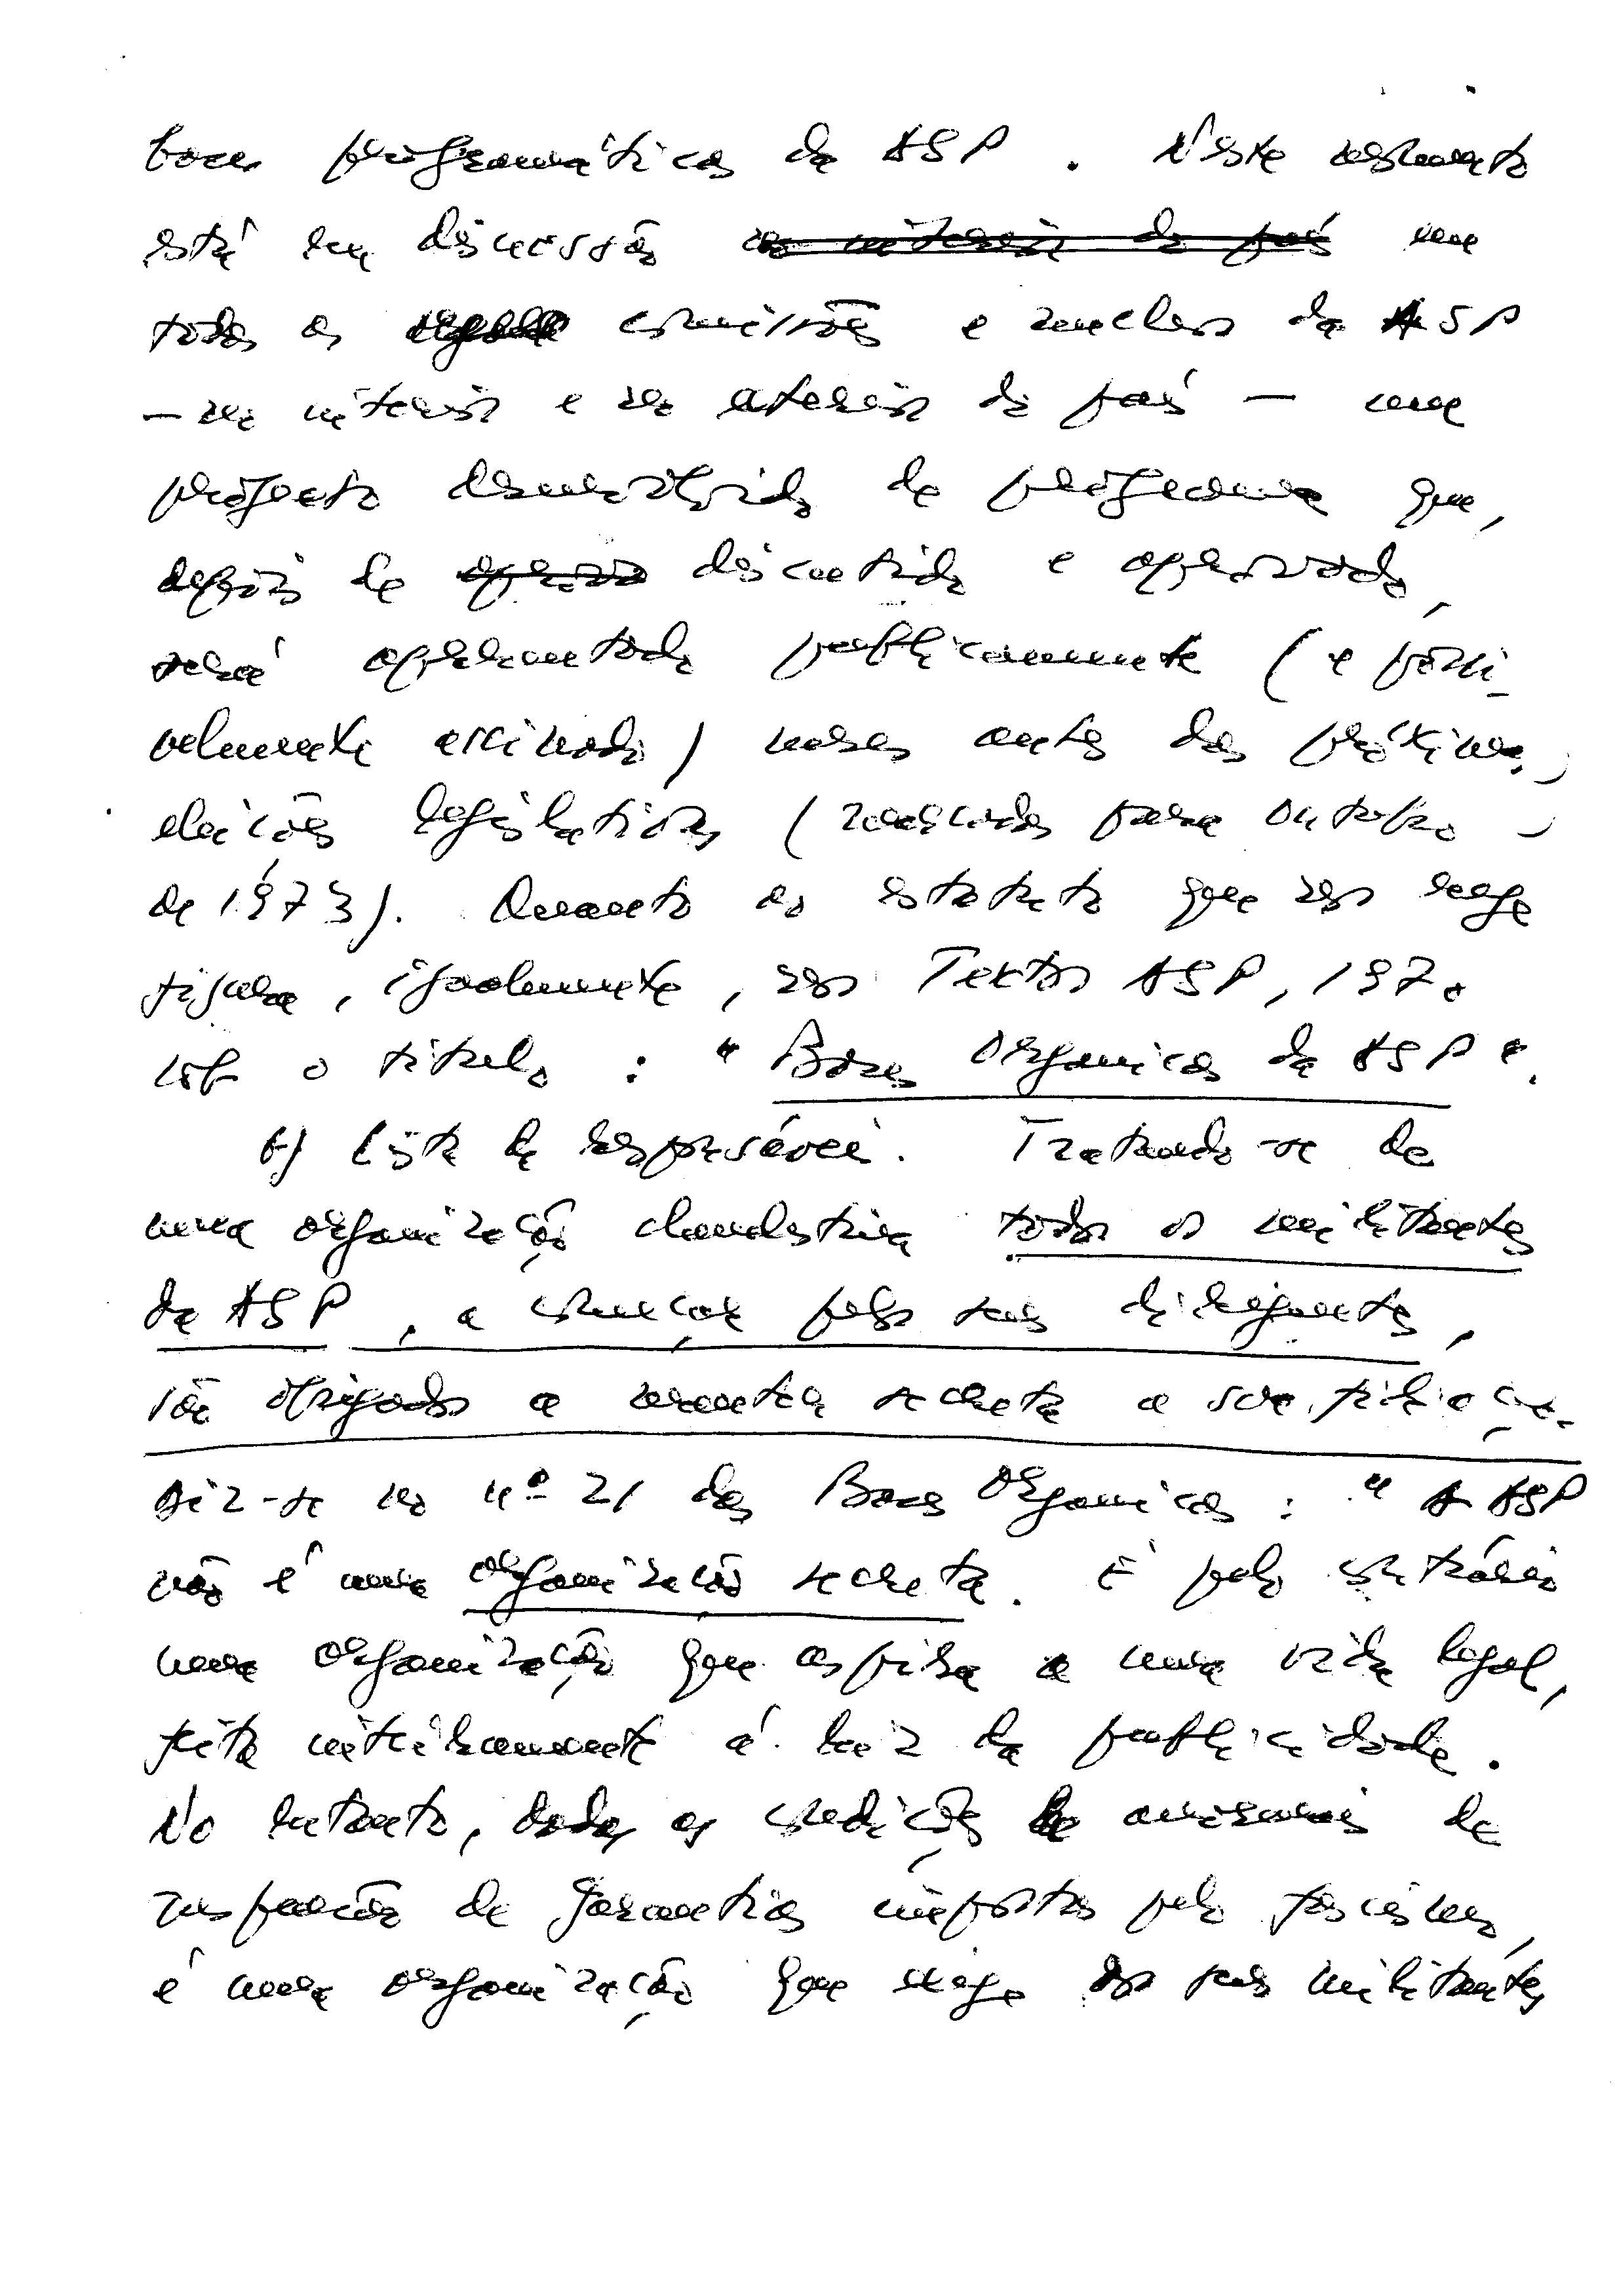 bases programáticas da ASP. Neste momento
está em discussão no interior do país em
todas as comissões e nucleos da ASP
— no interior e no exterior do país — um
projecto desenvolvido de programa que,
depois de discutido e aprovado,
será apresentado publicamente (e possi-
velmente assinado) meses antes das próximas
eleições legislativas (marcadas para Outubro
de 1973). Quanto ao estatuto que nos rege
figura, igualmente, nos Textos ASP, 1970
sob o titulo: "Bases Organicas da ASP".
b) Lista de responsáveis. Tratando-se de
uma organização clandestina todos os militantes
da ASP, a começar pelos seus dirigentes,
são obrigados a manter secreta a sua filiação.
Diz-se no nº 21 das Bases Organicas: "A ASP
não é uma organização secreta. É pelo contrário
uma organização que aspira a uma vida legal,
feita inteiramente á luz da publicidade.
No entanto, dadas as condições anormais de
suspensão de garantias impostas pelo fascismo,
é uma organização que exige dos seus militantes